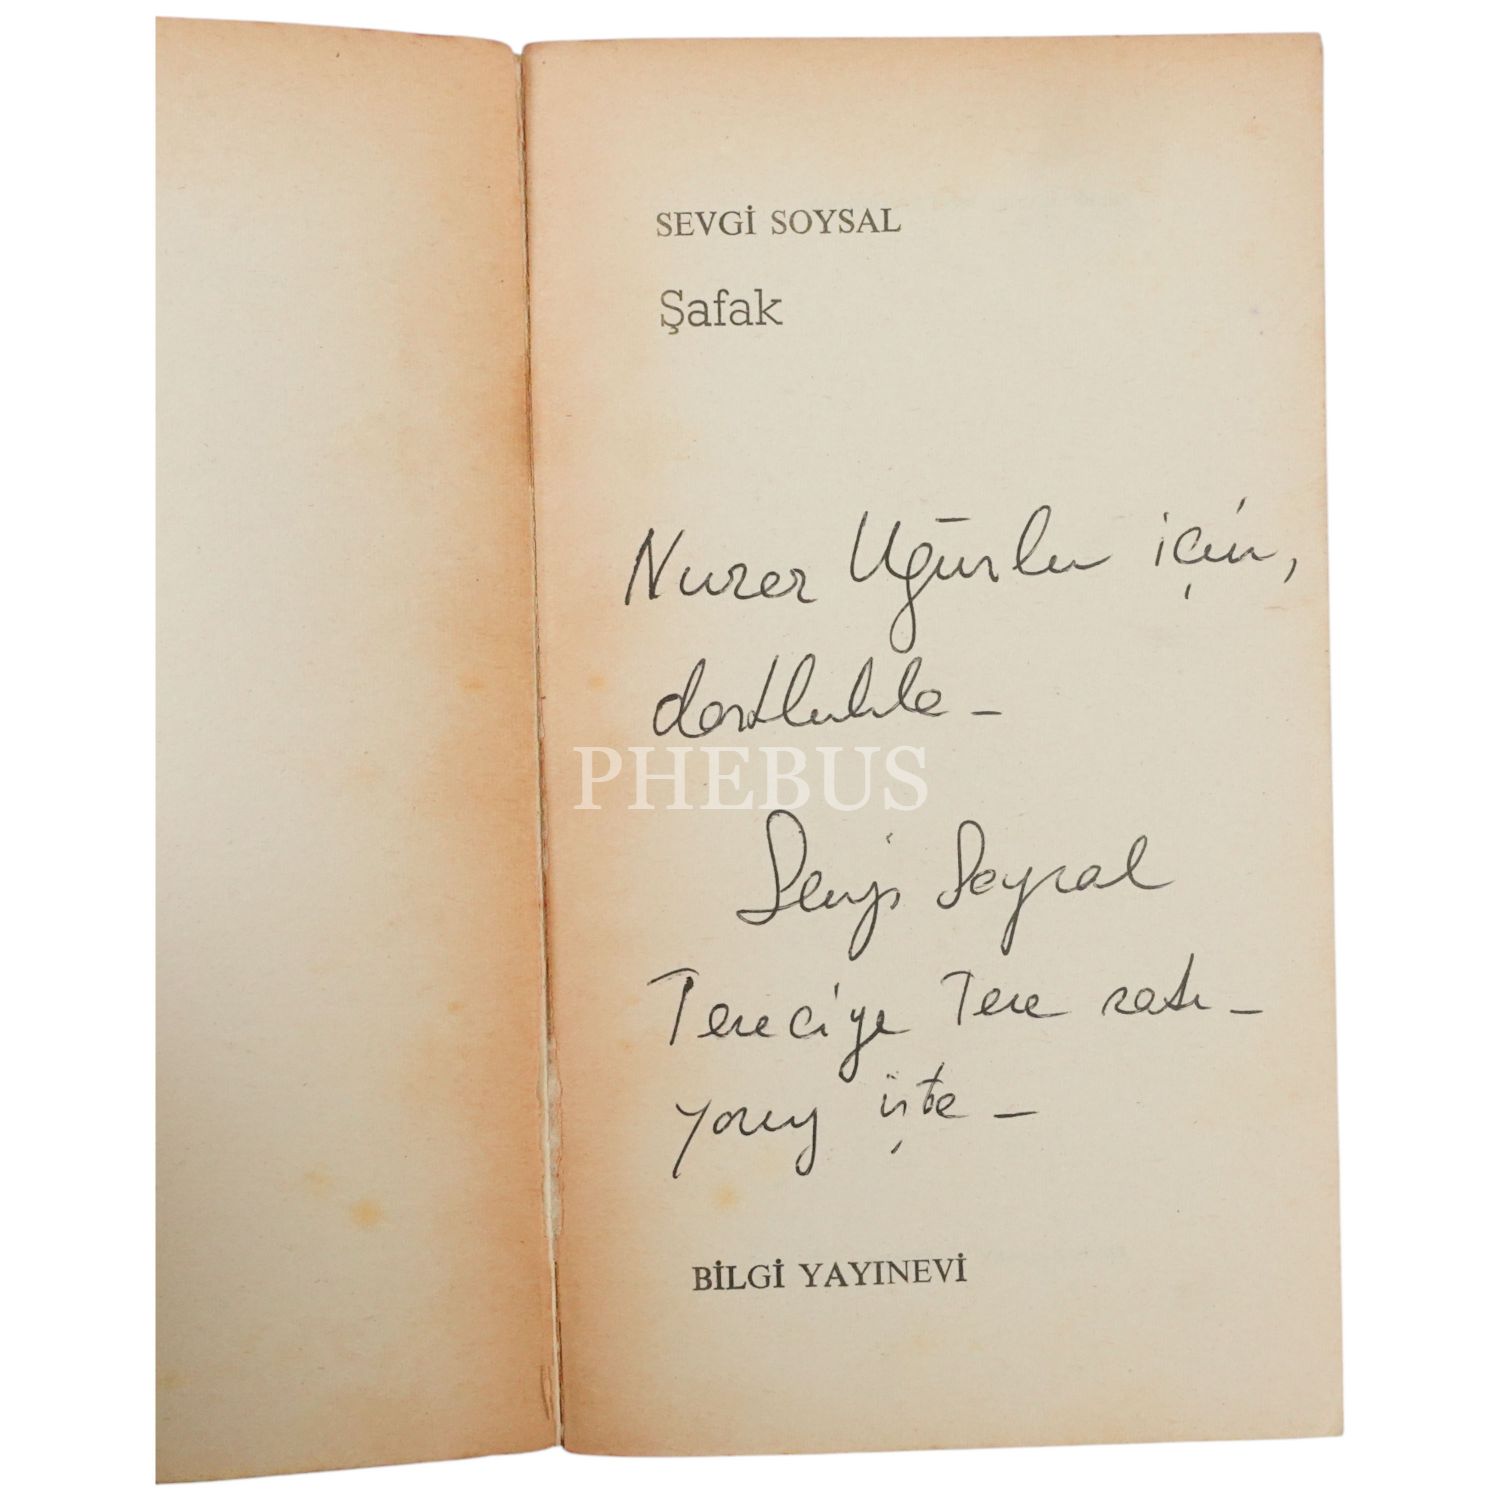 SEVGİ SOYSAL
Şafak
Nurer Uğurlu için,
dostlukla –
PHEBUS
Sevgi Soysal
Tereciye Tere satı–
yoruz işte –
BİLGİ YAYINEVİ